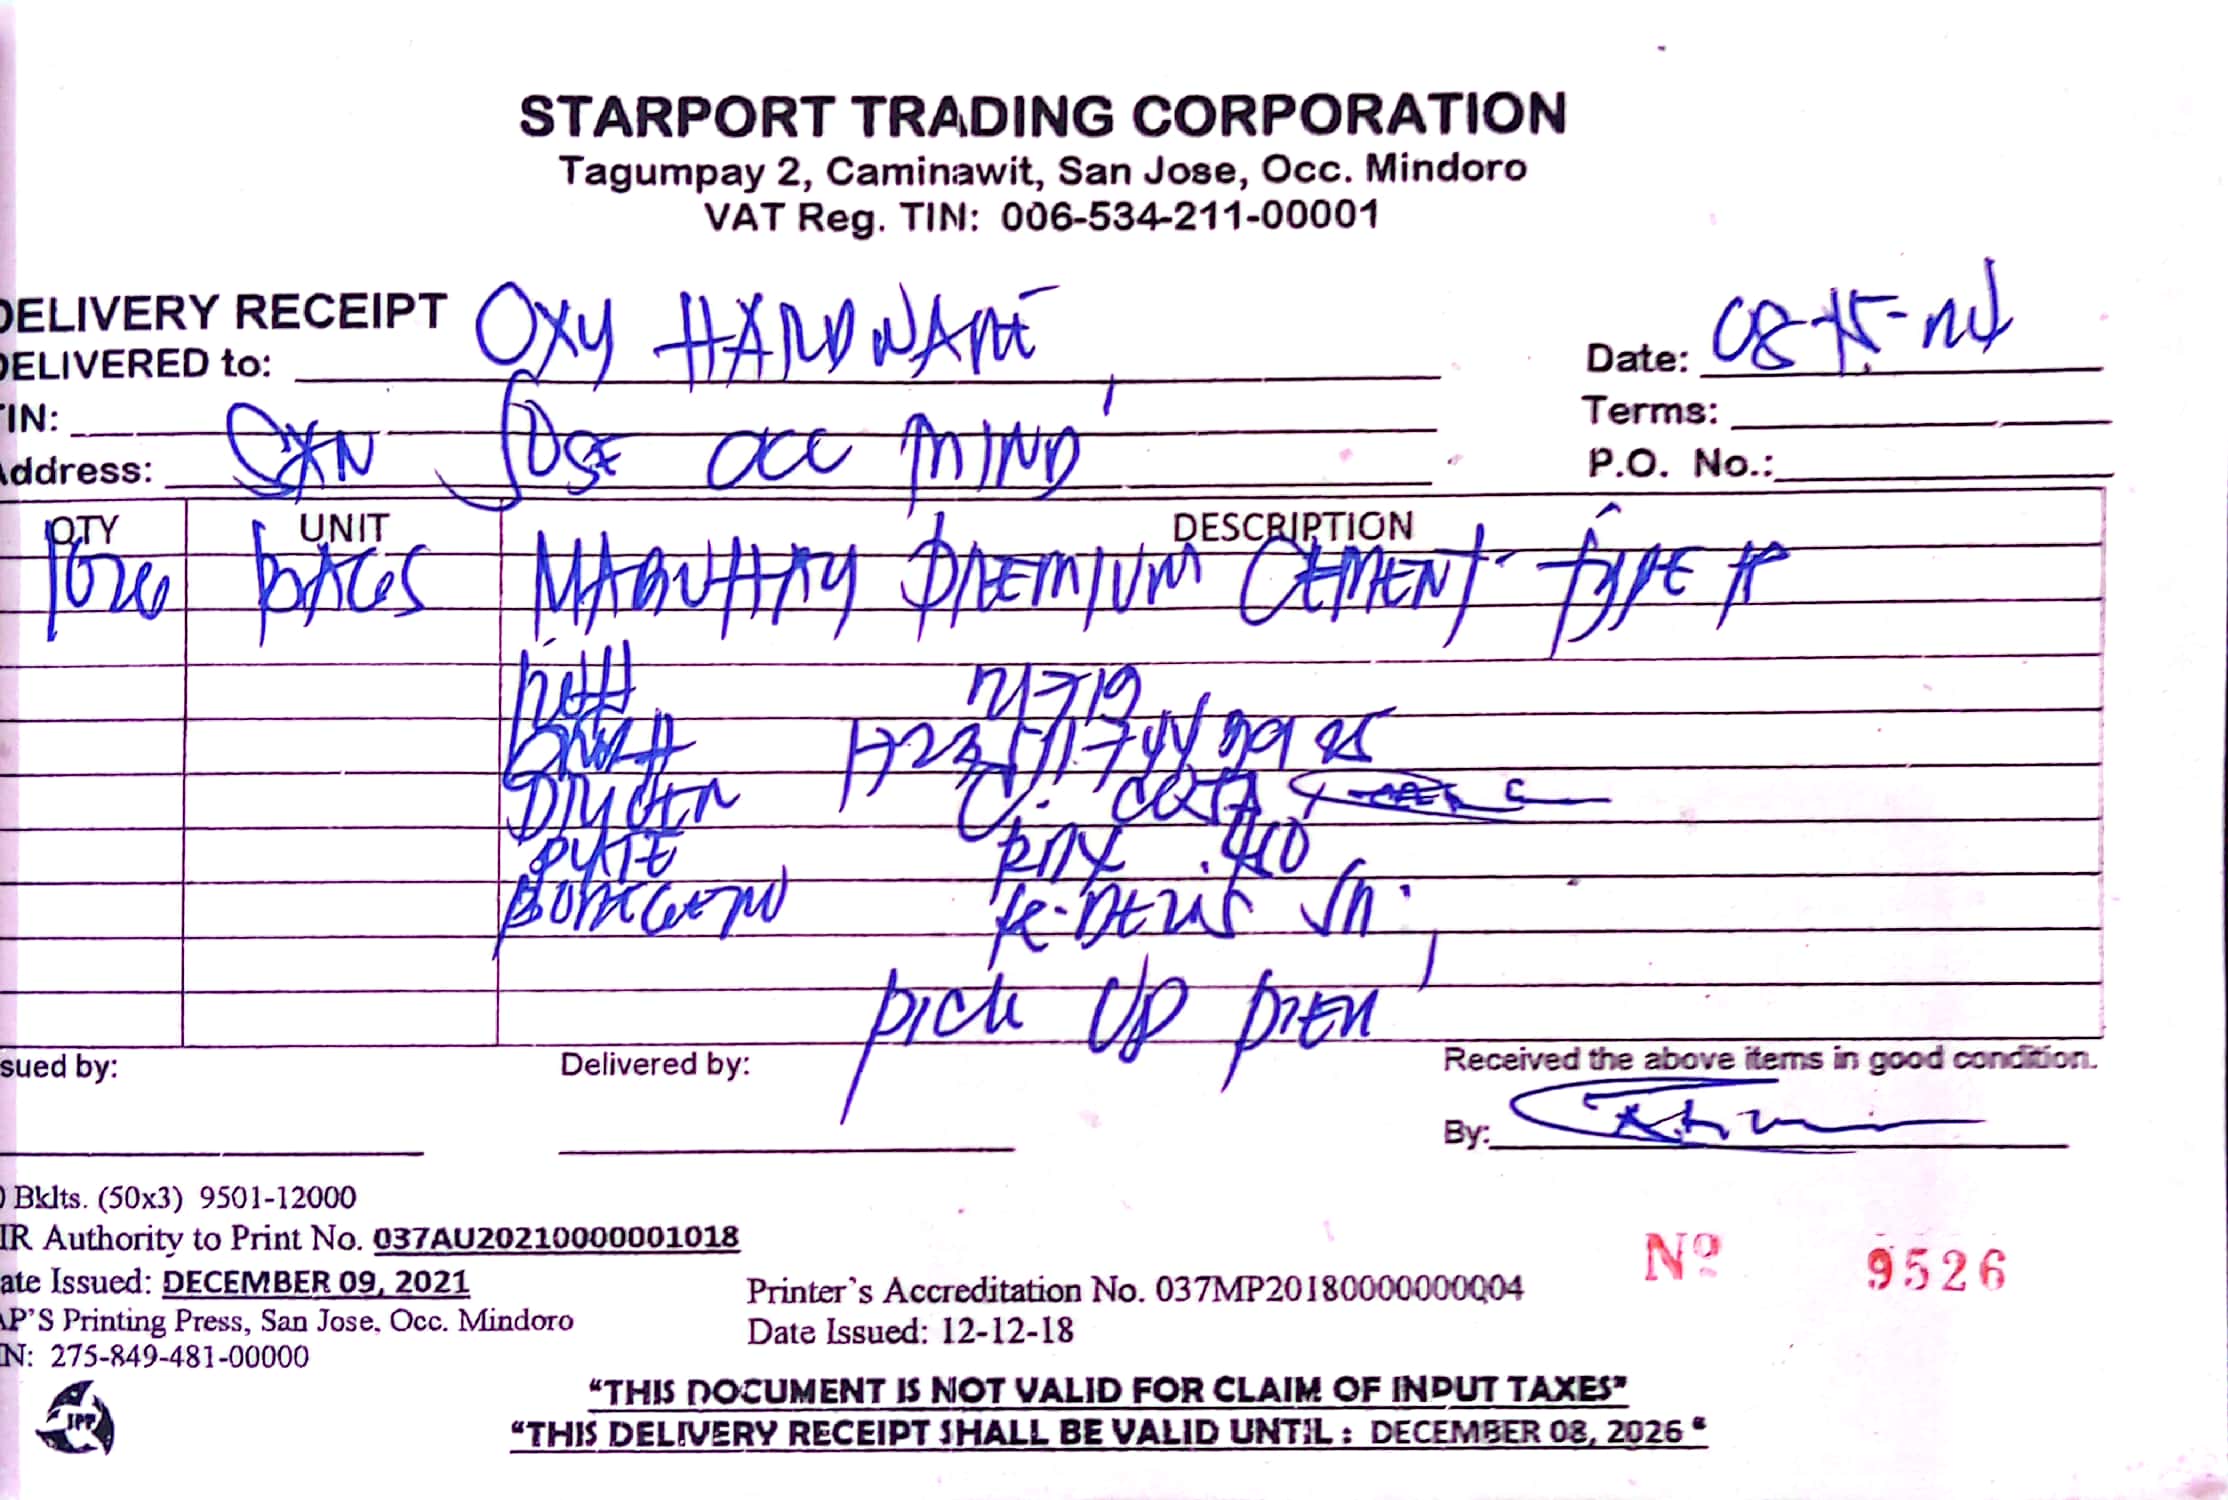 STARPORT TRADING CORPORATION
Tagumpay 2, Caminawit, San Jose, Occ. Mindoro
VAT Reg. TIN: 006-534-211-00001
DELIVERY RECEIPT
DELIVERED to: OXY HARDWARE
Date: 08-15-24
TIN:
Terms:
Address: SAN JOSE OCC MIND
P.O. No.:
QTY UNIT DESCRIPTION
BAGS MABUHAY PREMIUM CEMENT TYPE
PICK UP PIER
sued by: Delivered by: Received the above items in good condition.
By:
Bklts. (50x3) 9501-12000
IR Authority to Print No. 037AU20210000001018
ate Issued: DECEMBER 09, 2021
Printer's Accreditation No. 037MP20180000000004
P'S Printing Press, San Jose, Occ. Mindoro
Date Issued: 12-12-18
N: 275-849-481-00000
Nº 9526
JPP
"THIS DOCUMENT IS NOT VALID FOR CLAIM OF INPUT TAXES"
"THIS DELIVERY RECEIPT SHALL BE VALID UNTIL : DECEMBER 08, 2026 "